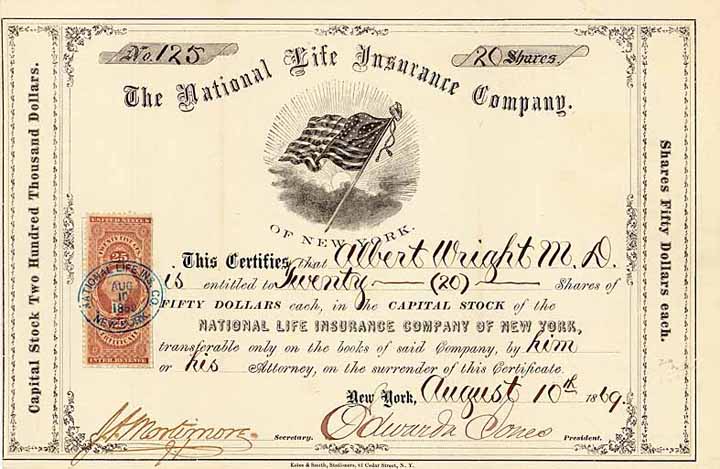 No. 125
20 Shares.
The National Life Insurance Company.
OF NEW YORK.
Capital Stock Two Hundred Thousand Dollars.
Shares Fifty Dollars each.
This Certifies that Albert Wright M. D.
is entitled to Twenty (20) Shares of
FIFTY DOLLARS each, in the CAPITAL STOCK of the
NATIONAL LIFE INSURANCE COMPANY OF NEW YORK,
transferable only on the books of said Company, by him
or his Attorney, on the surrender of this Certificate.
New York, August 10th 1869.
Secretary.
Edward A. Jones President.
UNITED STATES
25
NATIONAL LIFE INS. CO.
AUG
10
NEW YORK
CERTIFICATE
INTER. REVENUE
& Smith, Stationers, 81 Cedar Street, N. Y.